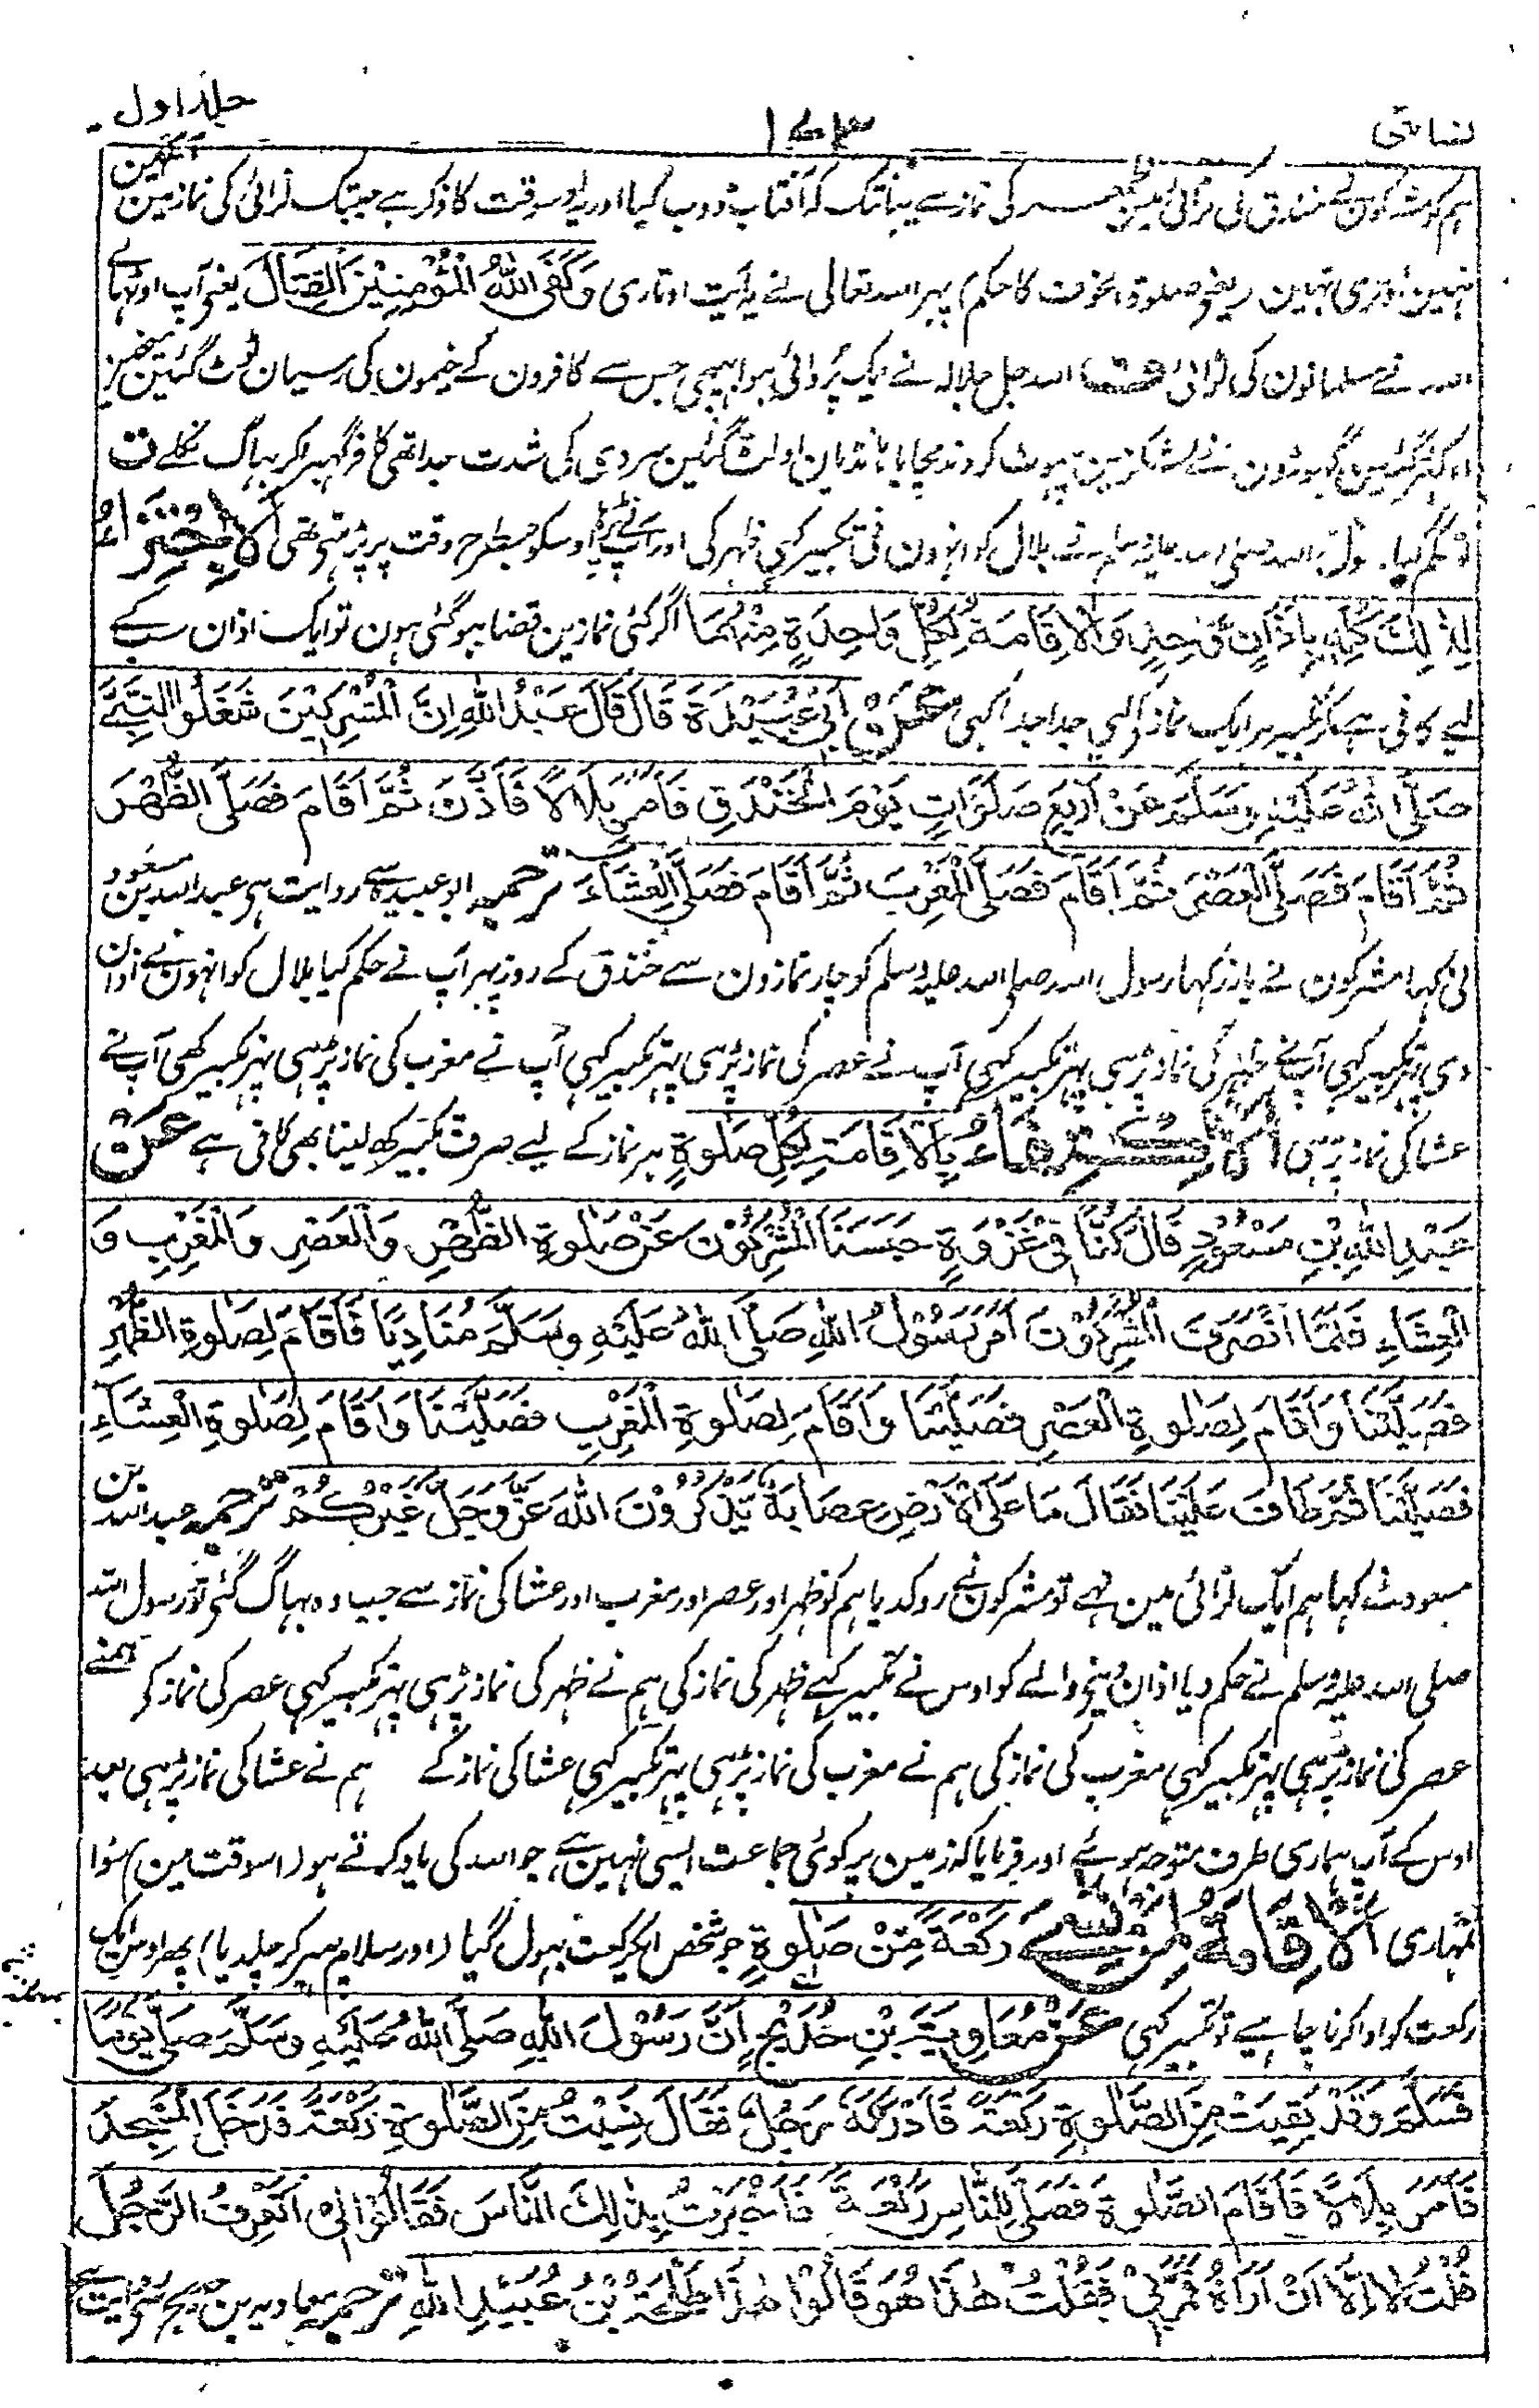 نسائی ۱۷۳ جلد اول
ہم کو مشرکون نے خندق کی لڑائی مین ظہر کی نماز سے یہانتک کہ آفتاب ڈوب گیا اور یہ اوسوقت کا ذکر ہے جبتک لڑائی کی نمازمین آیتین
نہین اوتری تہین (یعنے صلوۃ الخوف کا حکم) پہر اللہ تعالی نے یہ آیت اوتاری وَكَفَى اللهُ الْمُؤْمِنِيْنَ الْقِتَالَ یعنی آپ اوٹہالی
اللہ نے مسلمانون کی لڑائی ف اللہ جل جلالہ نے ایک پُروائی ہوا بہیجی جس سے کافرون کے خیمون کی رسیان ٹوٹ گئین میخین
اوکہڑ گئین گہوڑون نے لشکر مین چہوٹ کر دند مچایا ہانڈیان اولٹ گئین سردی کی شدت جدا تھی کافر گہبرا کر بہاگ نکلے ف
تو حکم کیا رسول اللہ صلی اللہ علیہ وسلم نے بلال کو انہون نی تکبیر کہی ظہر کی اور آپ نے پڑہا اوسکو جسطرح وقت پر پڑہتی تھی اَلْاِجْتِزَاءُ
لِذٰلِكَ كُلِّهِ بِاَذَانٍ وَّاحِدٍ وَالْاِقَامَةُ لِكُلِّ وَاحِدَةٍ مِنْهُمَا اگر کئی نمازین قضا ہوگئی ہون تو ایک اذان سب کے
لیے کافی ہے مگر تکبیر ہر ایک نماز کی جدا جدا کہی عَنْ اَبِي عُبَيْدَةَ قَالَ قَالَ عَبْدُ اللهِ اِنَّ الْمُشْرِكِيْنَ شَغَلُوا النَّبِيَّ
صَلَّى اللهُ عَلَيْهِ وَسَلَّمَ عَنْ اَرْبَعِ صَلَوَاتٍ يَوْمَ الْخَنْدَقِ فَاَمَرَ بِلَالًا فَاَذَّنَ ثُمَّ اَقَامَ فَصَلَّى الظُّهْرَ
ثُمَّ اَقَامَ فَصَلَّى الْعَصْرَ ثُمَّ اَقَامَ فَصَلَّى الْمَغْرِبَ ثُمَّ اَقَامَ فَصَلَّى الْعِشَاءَ ترجمہ ابو عبیدہ سے روایت ہی عبد اللہ بن مسعود
نی کہا مشرکون نے باز رکہا رسول اللہ صلی اللہ علیہ وسلم کو چار نمازون سے خندق کے روز پہر آپ نے حکم کیا بلال کو انہون نے اذان
دی پہر تکبیر کہی آپنے ظہر کی نماز پڑہی پہر تکبیر کہی آپ نے عصر کی نماز پڑہی پہر تکبیر کہی آپ نے مغرب کی نماز پڑہی پہر تکبیر کھی آپنے
عشا کی نماز پڑہی اَلْاِكْتِفَاءُ بِالْاِقَامَةِ لِكُلِّ صَلٰوةٍ ہر نماز کے لیے صرف تکبیر کہہ لینا بھی کافی ہے عَنْ
عَبْدِ اللهِ بْنِ مَسْعُوْدٍ قَالَ كُنَّا فِيْ غَزْوَةٍ حَبَسَنَا الْمُشْرِكُوْنَ عَنْ صَلٰوةِ الظُّهْرِ وَالْعَصْرِ وَالْمَغْرِبِ وَ
الْعِشَاءِ فَلَمَّا انْصَرَفَ الْمُشْرِكُوْنَ اَمَرَ رَسُوْلُ اللهِ صَلَّى اللهُ عَلَيْهِ وَسَلَّمَ مُنَادِيًا فَاَقَامَ لِصَلٰوةِ الظُّهْرِ
فَصَلَّيْنَا وَاَقَامَ لِصَلٰوةِ الْعَصْرِ فَصَلَّيْنَا وَاَقَامَ لِصَلٰوةِ الْمَغْرِبِ فَصَلَّيْنَا وَاَقَامَ لِصَلٰوةِ الْعِشَاءِ
فَصَلَّيْنَا ثُمَّ طَافَ عَلَيْنَا فَقَالَ مَا عَلَى الْاَرْضِ عِصَابَةٌ يَّذْكُرُوْنَ اللهَ عَزَّ وَجَلَّ غَيْرُكُمْ ترجمہ عبد اللہ بن
مسعود نے کہا ہم ایک لڑائی مین تہے تو مشرکون نے روکدیا ہم کو ظہر اور عصر اور مغرب اور عشا کی نماز سے جب وہ بہاگ گئی تو رسول اللہ
صلی اللہ علیہ وسلم نے حکم دیا اذان دینے والے کو اوس نے تکبیر کہے ظہر کی نماز کی ہم نے ظہر کی نماز پڑہی پہر تکبیر کہی عصر کی نماز کو ہمنے
عصر کی نماز پڑہی پہر تکبیر کہی مغرب کی نماز کی ہم نے مغرب کی نماز پڑہی پہر تکبیر کہی عشا کی نماز کے ہم نے عشا کی نماز پڑہی بعد
اوس کے آپ ہماری طرف متوجہ ہوئے اور فرمایا کہ زمین پر کوئی جماعت ایسی نہین ہے جو اللہ کی یاد کرتے ہو (اسوقت مین) سوا
تمہاری اَلْاِقَامَةُ لِمَنْ نَسِيَ رَكْعَةً مِّنْ صَلٰوةٍ جو شخص ایک رکعت بہول گیا (اور سلام پہیر کر چلدیا) پھر اوس ایک
رکعت کو ادا کرنا چاہیے تو تکبیر کہی عَنْ مُعَاوِيَةَ بْنِ حُدَيْجٍ اَنَّ رَسُوْلَ اللهِ صَلَّى اللهُ عَلَيْهِ وَسَلَّمَ صَلّٰى يَوْمًا
فَسَلَّمَ وَقَدْ بَقِيَتْ مِنَ الصَّلٰوةِ رَكْعَةٌ فَاَدْرَكَهُ رَجُلٌ فَقَالَ نَسِيْتَ مِنَ الصَّلٰوةِ رَكْعَةً فَدَخَلَ الْمَسْجِدَ
فَاَمَرَ بِلَالًا فَاَقَامَ الصَّلٰوةَ فَصَلّٰى لِلنَّاسِ رَكْعَةً فَاَخْبَرْتُ بِذٰلِكَ النَّاسَ فَقَالُوْا لِيْ اَتَعْرِفُ الرَّجُلَ
قُلْتُ لَا اِلَّا اَنْ اَرَاهُ فَمَرَّ بِيْ فَقُلْتُ هٰذَا هُوَ قَالُوْا هٰذَا طَلْحَةُ بْنُ عُبَيْدِ اللهِ ترجمہ معاویہ بن حدیج سے روایت ہے